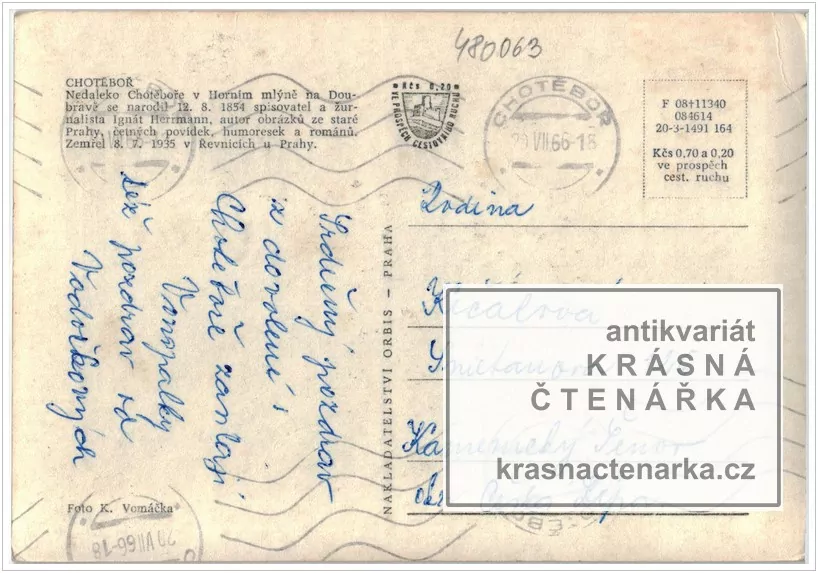 480063
CHOTĚBOŘ
Nedaleko Chotěboře v Horním mlýně na Dou-
bravě se narodil 12. 8. 1854 spisovatel a žur-
nalista Ignát Herrmann, autor obrázků ze staré
Prahy, četných povídek, humoresek a románů.
Zemřel 8. 7. 1935 v Řevnicích u Prahy.
Kčs 0,20
VE PROSPĚCH CESTOVNÍHO RUCHU
CHOTĚBOŘ
20.VII.66-18
F 08+11340
084614
20-3-1491 164
Kčs 0,70 a 0,20
ve prospěch
cest. ruchu
Srdečný pozdrav
z dovolení z
Chotěboře zasílají
též pozdrav od
Vodičkových
NAKLADATELSTVÍ ORBIS – PRAHA
Rodina
Kamenický Šenov
Česká Lípa
antikvariát
KRÁSNÁ
ČTENÁŘKA
krasnactenarka.cz
Foto K. Vomáčka
20.VII.66-18